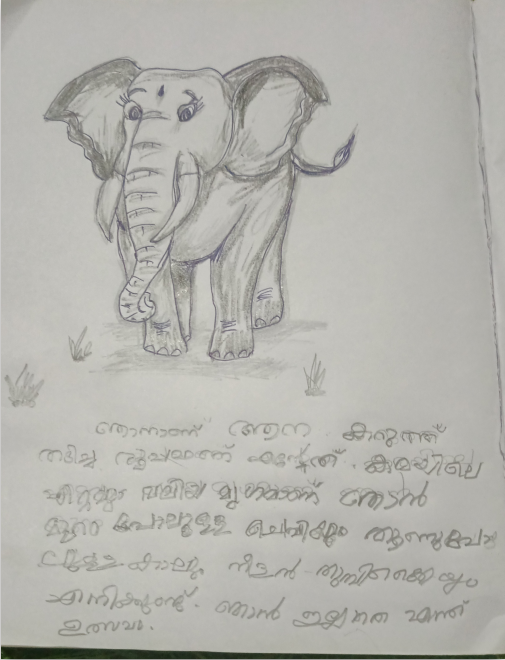 ഞാനാണ് ആന. കറുത്ത്
തടിച്ച രൂപമാണ് എന്റേത്. കരയിലെ
ഏറ്റവും വലിയ മൃഗമാണ് ഞാൻ
മുറം പോലുള്ള ചെവികളും തൂണുപോ
ലുള്ള കാലും നീണ്ട തുമ്പിക്കൈയും
എനിക്കുണ്ട്. ഞാൻ ഇല്ലാതെ എന്ത്
ഉത്സവം.